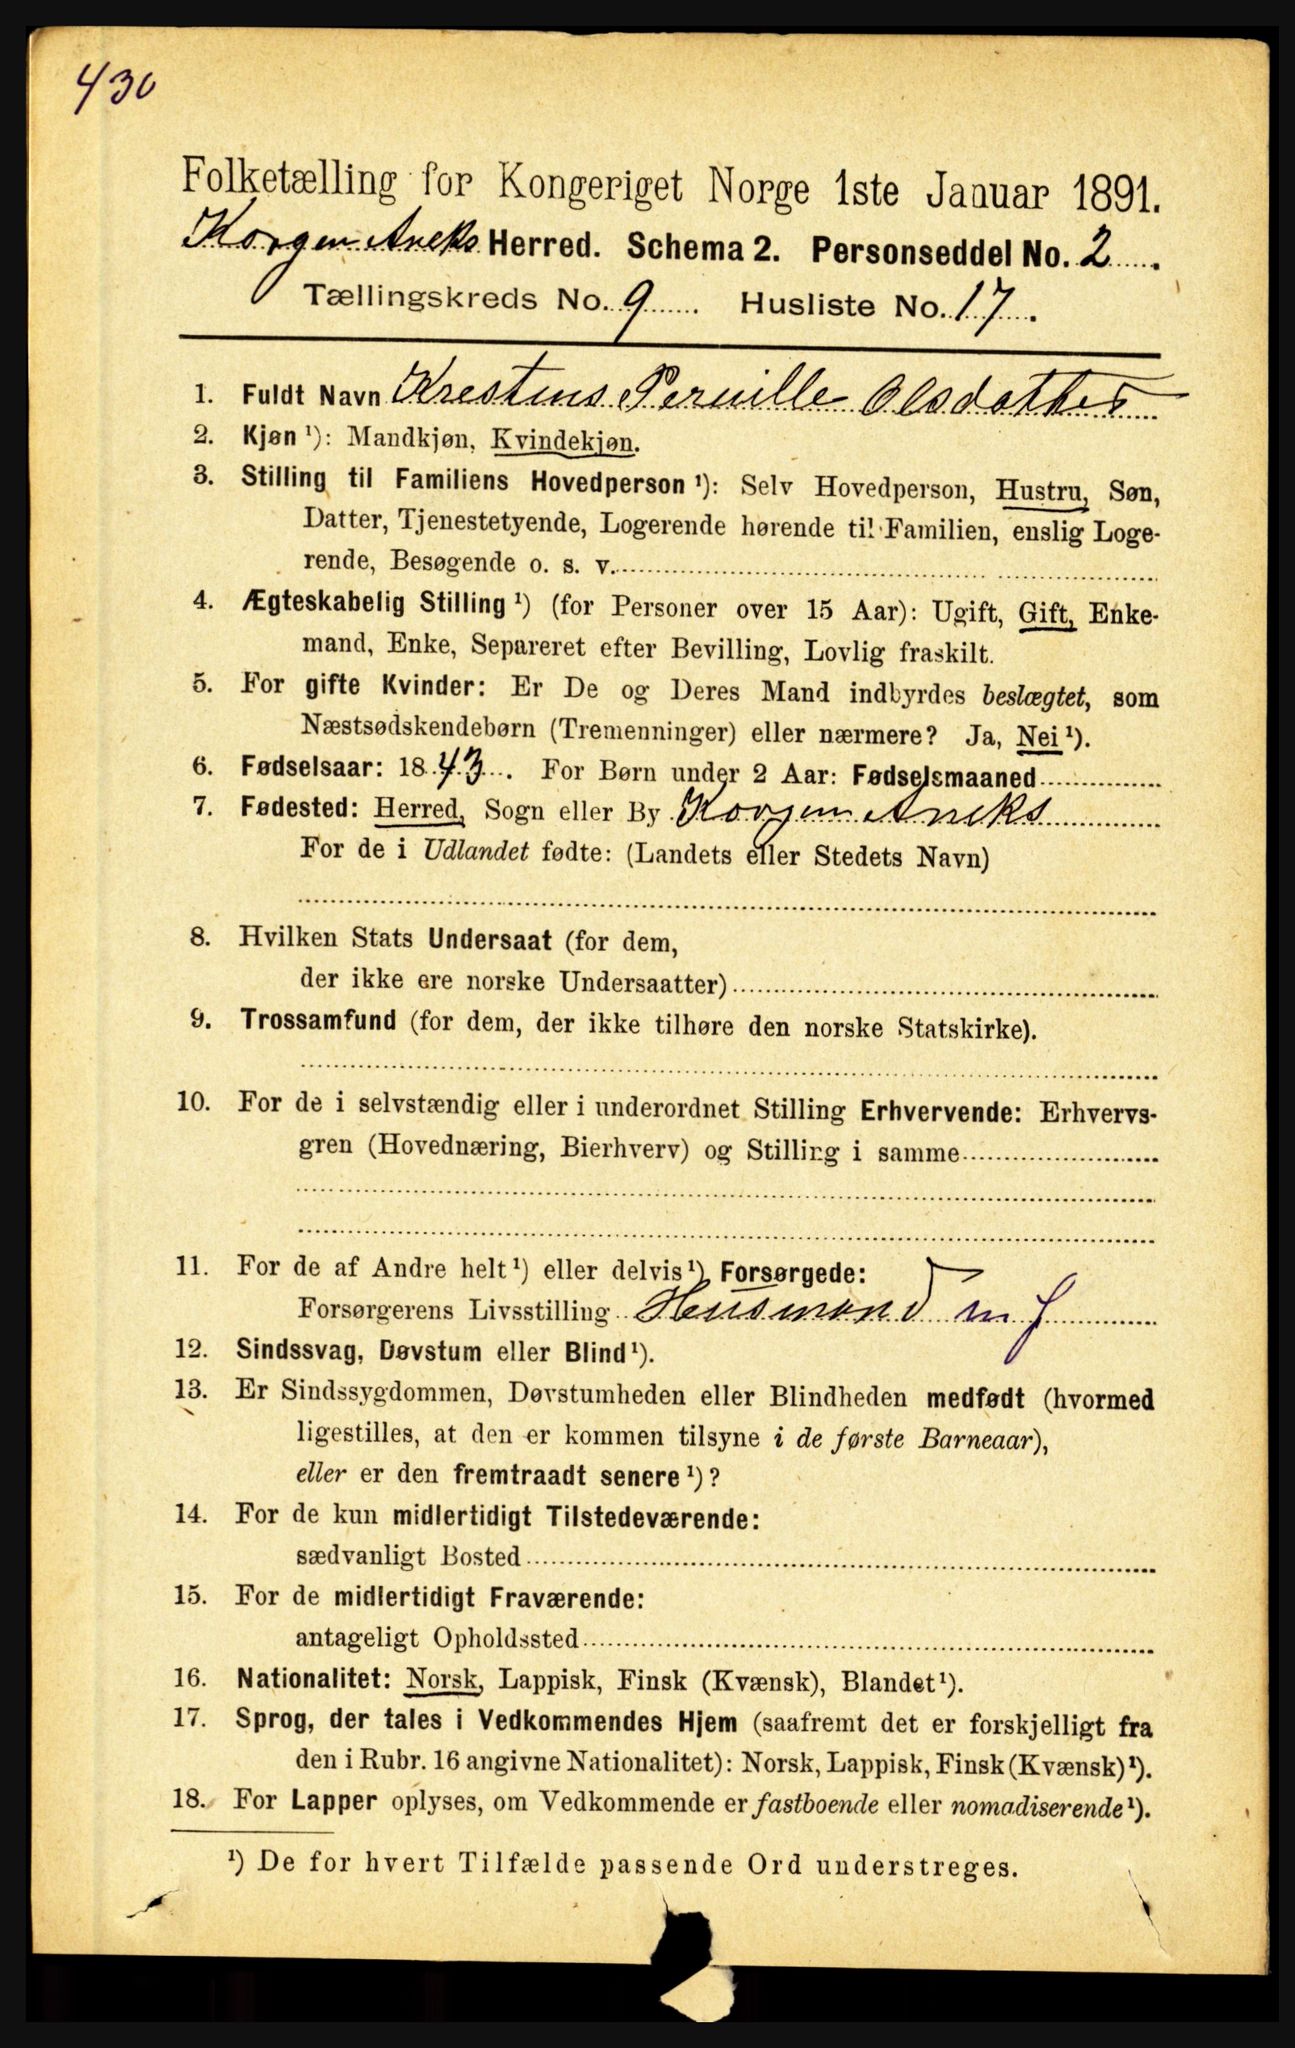 430
Folketælling for Kongeriget Norge 1ste Januar 1891.
Korgen Aneks Herred. Schema 2. Personseddel No. 2.
Tællingskreds No. 9. Husliste No. 17.
1. Fuldt Navn Krestens Pernille Olsdatter
2. Kjøn ¹): Mandkjøn, Kvindekjøn.
3. Stilling til Familiens Hovedperson ¹): Selv Hovedperson, Hustru, Søn,
Datter, Tjenestetyende, Logerende hørende til Familien, enslig Loge-
rende, Besøgende o. s. v.
4. Ægteskabelig Stilling ¹) (for Personer over 15 Aar): Ugift, Gift, Enke-
mand, Enke, Separeret efter Bevilling, Lovlig fraskilt.
5. For gifte Kvinder: Er De og Deres Mand indbyrdes beslægtet, som
Næstsødskendebørn (Tremenninger) eller nærmere? Ja, Nei ¹).
6. Fødselsaar: 1843. For Børn under 2 Aar: Fødselsmaaned
7. Fødested: Herred, Sogn eller By Korgen Aneks
For de i Udlandet fødte: (Landets eller Stedets Navn)
8. Hvilken Stats Undersaat (for dem,
der ikke ere norske Undersaatter)
9. Trossamfund (for dem, der ikke tilhøre den norske Statskirke).
10. For de i selvstændig eller i underordnet Stilling Erhvervende: Erhvervs-
gren (Hovednæring, Bierhverv) og Stilling i samme
11. For de af Andre helt ¹) eller delvis ¹) Forsørgede:
Forsørgerens Livsstilling Husmand m f
12. Sindssvag, Døvstum eller Blind ¹).
13. Er Sindssygdommen, Døvstumheden eller Blindheden medfødt (hvormed
ligestilles, at den er kommen tilsyne i de første Barneaar),
eller er den fremtraadt senere ¹)?
14. For de kun midlertidigt Tilstedeværende:
sædvanligt Bosted
15. For de midlertidigt Fraværende:
antageligt Opholdssted
16. Nationalitet: Norsk, Lappisk, Finsk (Kvænsk), Blandet ¹).
17. Sprog, der tales i Vedkommendes Hjem (saafremt det er forskjelligt fra
den i Rubr. 16 angivne Nationalitet): Norsk, Lappisk, Finsk (Kvænsk) ¹).
18. For Lapper oplyses, om Vedkommende er fastboende eller nomadiserende ¹).
¹) De for hvert Tilfælde passende Ord understreges.